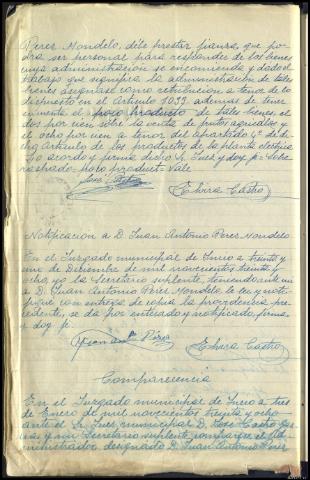 Perez Mondelo, debe prestar fianza, que po-
drá ser personal para responder de los bienes
cuya administración se encomienda y dado el
trabajo que significa la administración de tales
bienes asignase como retribución a tenor de lo
dispuesto en el artículo 1033 además de tener
en cuenta el poco producto de tales bienes, el
dos por cien sobre la venta de frutos agrícolas y
el ocho por cien a tenor del apartado 4º de di-
cho artículo de los productos de la planta electrica
Lo acordó y firma dicho Sr Juez y doy fe = Sobre-
raspado = poco product = Vale
José Castro
Elvira Castro
Notificación a D. Juan Antonio Perez Mondelo
En el Juzgado municipal de Incio a treinta y
uno de Diciembre de mil novecientos treinta y
ocho, yo la Secretario suplente, teniendo ante mi
a D. Juan Antonio Perez Mondelo le lei y noti-
fiqué con entrega de copia la providencia pre-
cedente, se da por enterado y notificado, firma
y doy fe
Perez
Elvira Castro
Comparecencia
En el Juzgado municipal de Incio a tres
de Enero de mil novecientos treinta y ocho
ante el Sr Juez municipal D. Jose Castro
y mi Secretario suplente, comparece el Ad-
ministrador designado D. Juan Antonio Perez